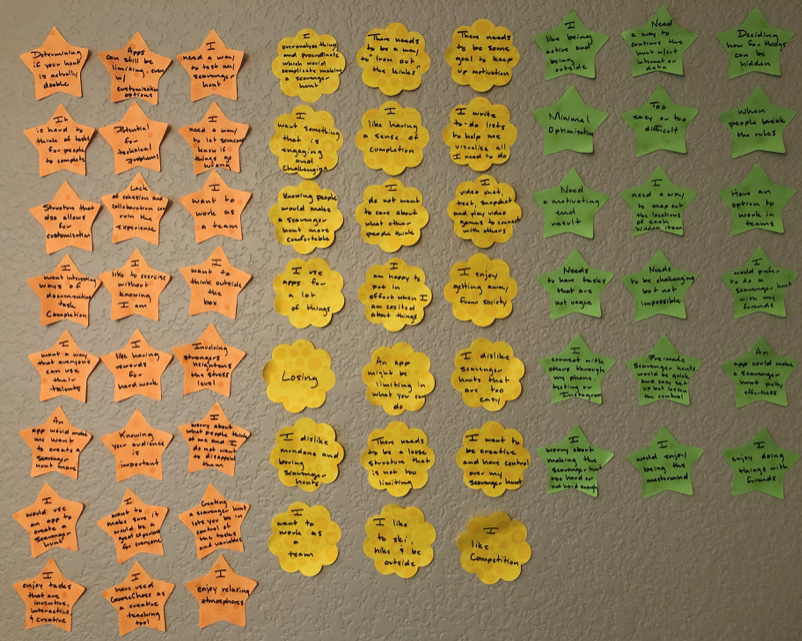 Determining
if your hunt
is actually
doable
Apps
can still be
limiting, even
w/
customization
options
I
need a way
to test my
scavenger
hunt
It
is hard to
think of tasks
for people
to complete
Potential
for
technical
problems
I
need a way
to let someone
know if
things go
wrong
Structure that
also allows
for
customization
Lack
of cohesion and
collaboration can
ruin the
experience
I
want to
work as
a team
I
want interesting
ways of
documenting
task
completion
I
like to exercise
without
knowing
I am
I
want to
think outside
the
box
I
want a way
that everyone
can use
their
talents
I
like having
rewards
for
hard work
Involving
strangers
heightens
the stress
level
An
app would make
me want to
create a
scavenger
hunt more
Knowing
your audience
is
important
I
worry about
what people think
of me and I
do not want
to disappoint
them
I
would use
an app to
create a
scavenger
hunt
I
want to
make sure it
would be a
good experience
for everyone
Creating
a scavenger hunt
lets you be in
control of
the tasks
and variables
I
enjoy tasks
that are
inventive,
interactive
& creative
I
have used
GooseChase as
a creative
teaching
tool
I
enjoy relaxing
atmospheres
I
overanalyze things
and procrastinate
which would
complicate making
a scavenger
hunt
There needs
to be a way
to "iron out
the kinks"
There needs
to be some
goal to keep
up motivation
I
want something
that is
engaging
and
challenging
I
like having
a sense of
completion
I write
to-do lists
to help me
visualize all
I need to do
Knowing people
would make
a scavenger
hunt more
comfortable
I
do not want
to care about
what other
people think
I
video chat,
text, snapchat
and play video
games to connect
with others
I use
apps for
a lot
of things
I
am happy to
put in
effort when I
am excited
about things
I enjoy
getting away
from society
Losing
An app
might be
limiting in
what you can
do
I dislike
scavenger
hunts that
are too
easy
I dislike
mundane and
boring
scavenger
hunts
There needs
to be a loose
structure that
is not too
limiting
I want to
be creative
and have control
over my
scavenger hunt
I
want to
work as
a
team
I like
to ski,
hike & be
outside
I
like
Competition
I
like being
active and
being
outside
Need
a way to
continue the
hunt w/out
internet or
data
Deciding
how far things
can be
hidden
Minimal
Optimization
Too
easy or too
difficult
When
people break
the rules
Need
a motivating
end
result
I
need a way
to map out
the locations
of each
hidden item
Have an
option to
work in
teams
Needs
to have tasks
that are
not vague
Needs
to be challenging
but not
impossible
I
would prefer
to do a
scavenger hunt
with my
friends
I
connect with
others through
my phone,
texting or
Instagram
Pre-made
scavenger hunts
would be quick
and easy set
up but lessen
the control
An
app could make
a scavenger
hunt fully
effortless
I
worry about
making the
scavenger hunt
too hard or
not hard enough
I
would enjoy
being the
mastermind
I
enjoy doing
things with
friends